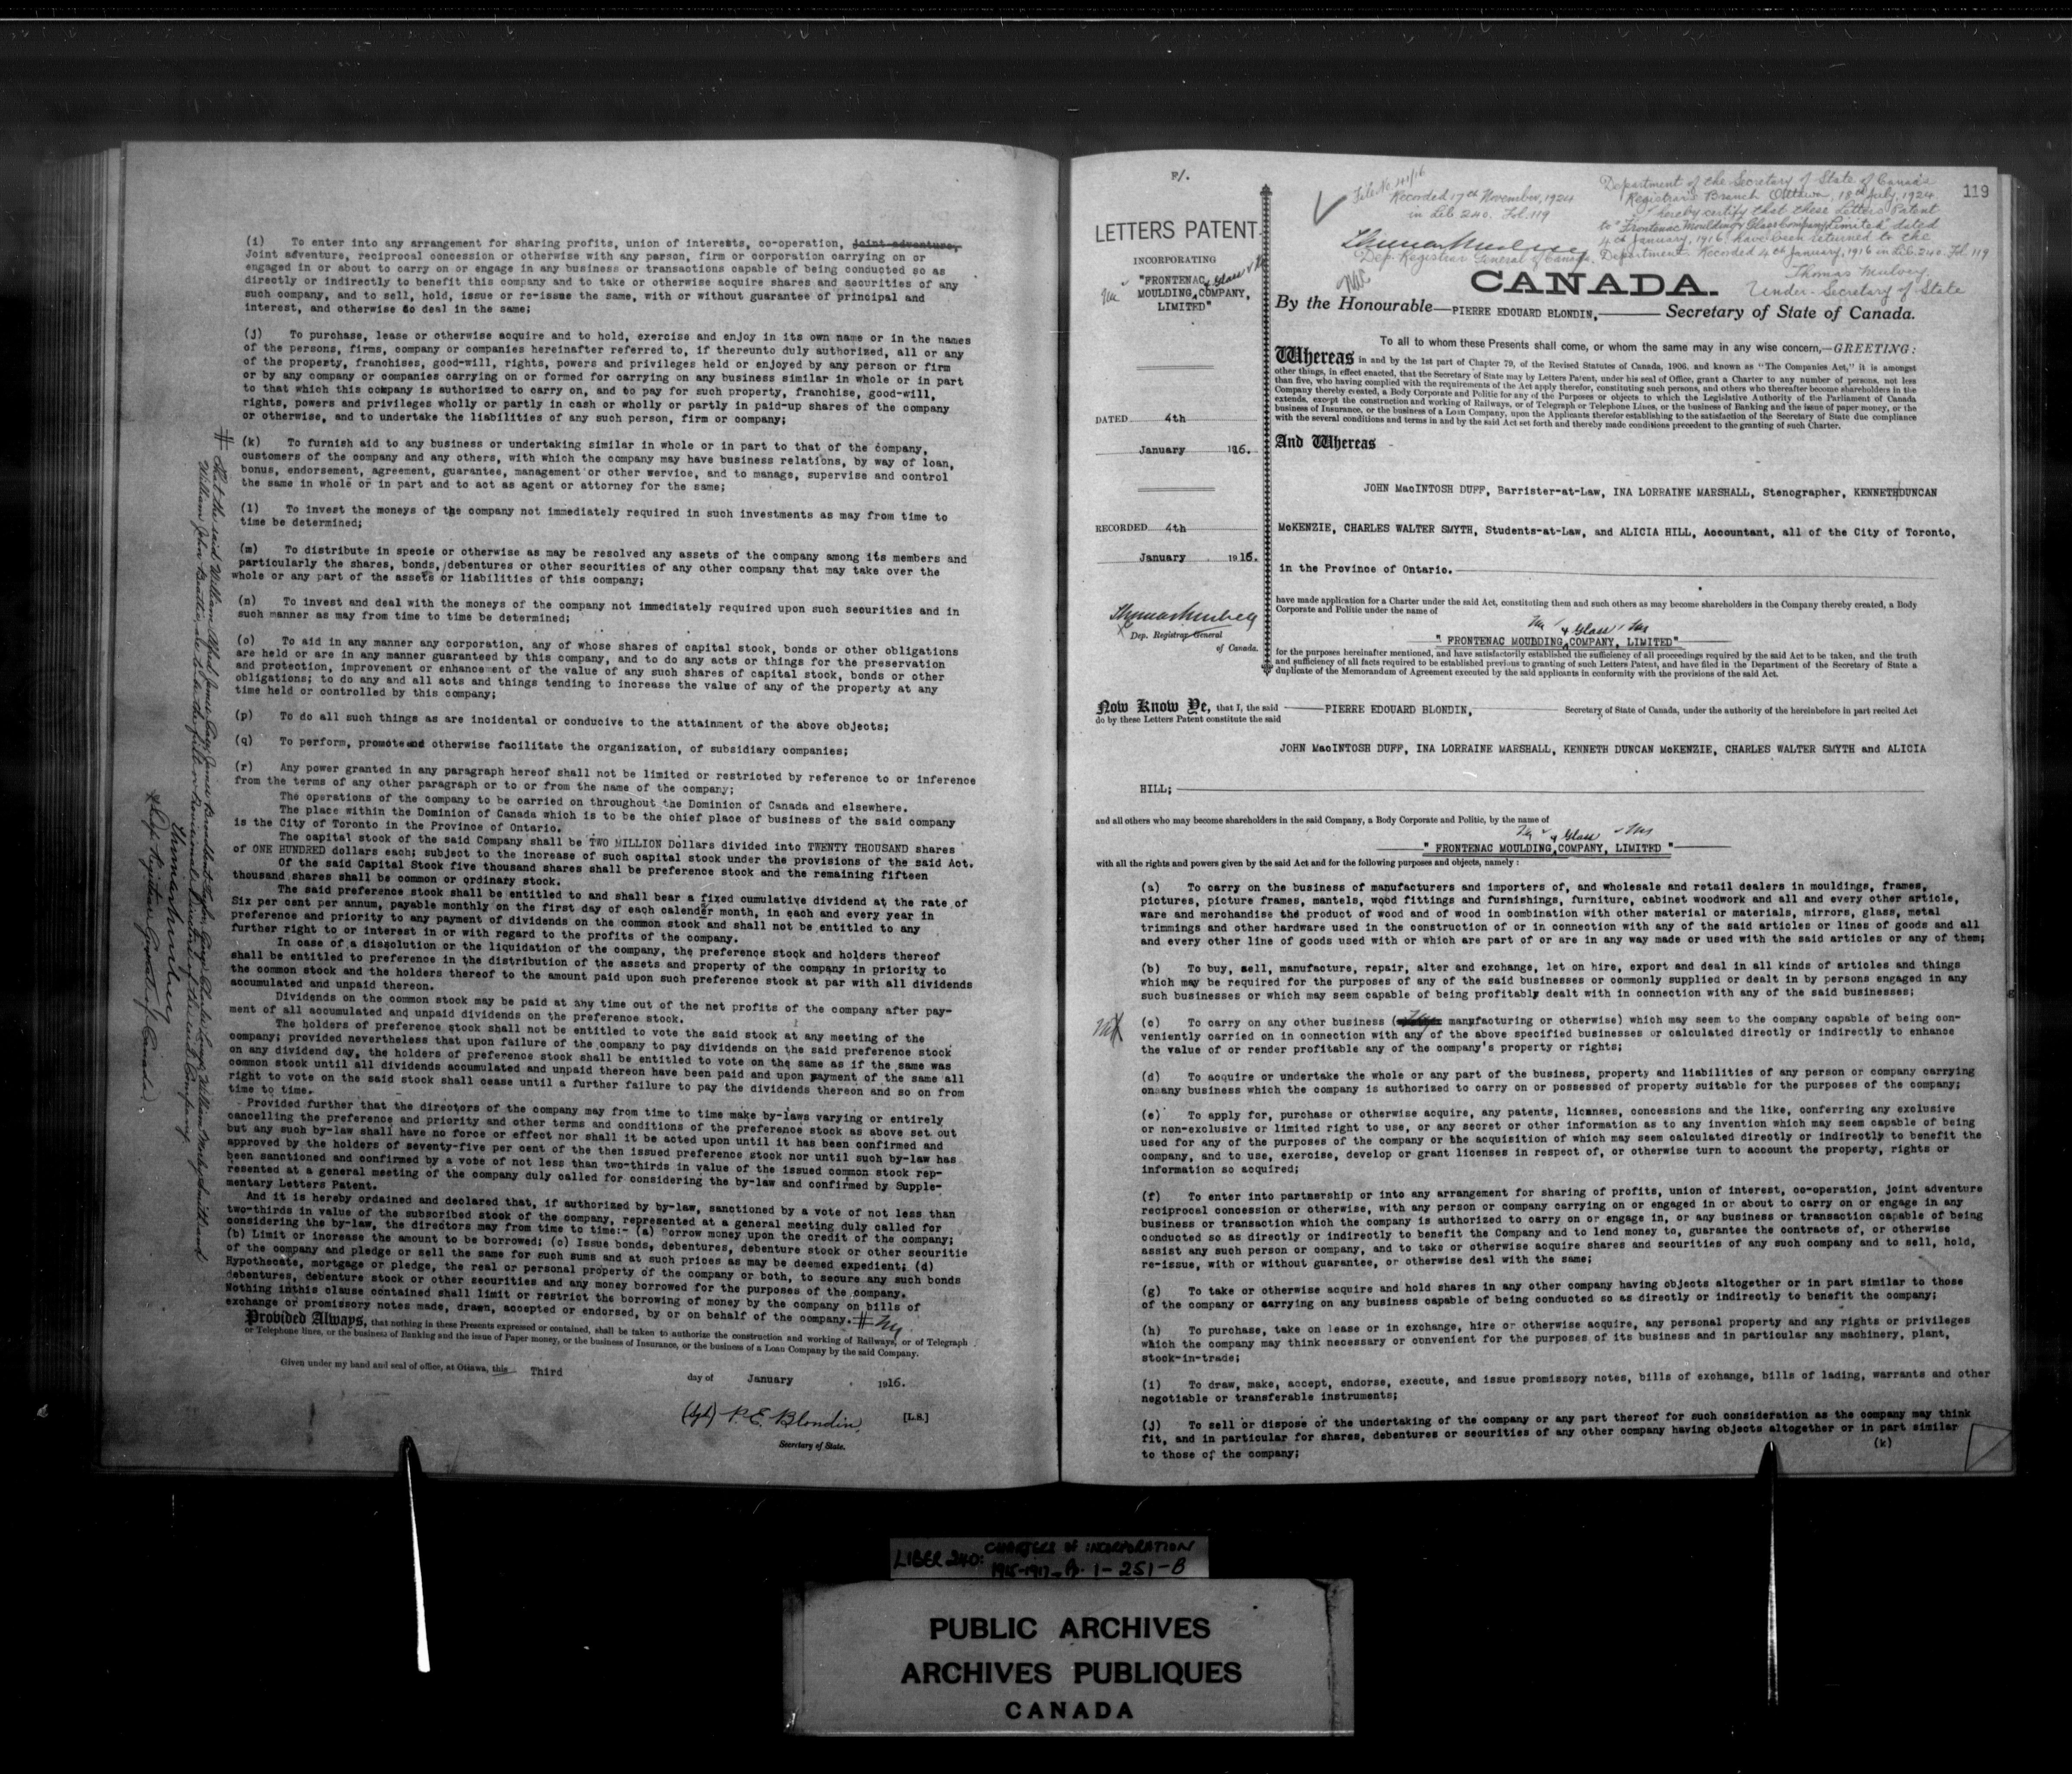 (i) To enter into any arrangement for sharing profits, union of interests, co-operation, joint adventure,
Joint adventure, reciprocal concession or otherwise with any person, firm or corporation carrying on or
engaged in or about to carry on or engage in any business or transactions capable of being conducted so as
directly or indirectly to benefit this company and to take or otherwise acquire shares and securities of any
such company, and to sell, hold, issue or re-issue the same, with or without guarantee of principal and
interest, and otherwise to deal in the same;
(j) To purchase, lease or otherwise acquire and to hold, exercise and enjoy in its own name or in the names
of the persons, firms, company or companies hereinafter referred to, if thereunto duly authorized, all or any
of the property, franchises, good-will, rights, powers and privileges held or enjoyed by any person or firm
or by any company or companies carrying on or formed for carrying on any business similar in whole or in part
to that which this company is authorized to carry on, and to pay for such property, franchise, good-will,
rights, powers and privileges wholly or partly in cash or wholly or partly in paid-up shares of the company
or otherwise, and to undertake the liabilities of any such person, firm or company;
(k) To furnish aid to any business or undertaking similar in whole or in part to that of the company,
customers of the company and any others, with which the company may have business relations, by way of loan,
bonus, endorsement, agreement, guarantee, management or other service, and to manage, supervise and control
the same in whole or in part and to act as agent or attorney for the same;
(l) To invest the moneys of the company not immediately required in such investments as may from time to
time be determined;
(m) To distribute in specie or otherwise as may be resolved any assets of the company among its members and
particularly the shares, bonds, debentures or other securities of any other company that may take over the
whole or any part of the assets or liabilities of this company;
(n) To invest and deal with the moneys of the company not immediately required upon such securities and in
such manner as may from time to time be determined;
(o) To aid in any manner any corporation, any of whose shares of capital stock, bonds or other obligations
are held or are in any manner guaranteed by this company, and to do any acts or things for the preservation
and protection, improvement or enhancement of the value of any such shares of capital stock, bonds or other
obligations; to do any and all acts and things tending to increase the value of any of the property at any
time held or controlled by this company;
(p) To do all such things as are incidental or conducive to the attainment of the above objects;
(q) To perform, promote and otherwise facilitate the organization, of subsidiary companies;
(r) Any power granted in any paragraph hereof shall not be limited or restricted by reference to or inference
from the terms of any other paragraph or to or from the name of the company;
The operations of the company to be carried on throughout the Dominion of Canada and elsewhere.
The place within the Dominion of Canada which is to be the chief place of business of the said company
is the City of Toronto in the Province of Ontario.
The capital stock of the said Company shall be TWO MILLION Dollars divided into TWENTY THOUSAND shares
of ONE HUNDRED dollars each; subject to the increase of such capital stock under the provisions of the said Act.
Of the said Capital Stock five thousand shares shall be preference stock and the remaining fifteen
thousand shares shall be common or ordinary stock.
The said preference stock shall be entitled to and shall bear a fixed cumulative dividend at the rate of
Six per cent per annum, payable monthly on the first day of each calender month, in each and every year in
preference and priority to any payment of dividends on the common stock and shall not be entitled to any
further right to or interest in or with regard to the profits of the company.
In case of a dissolution or the liquidation of the company, the preference stock and holders thereof
shall be entitled to preference in the distribution of the assets and property of the company in priority to
the common stock and the holders thereof to the amount paid upon such preference stock at par with all dividends
accumulated and unpaid thereon.
Dividends on the common stock may be paid at any time out of the net profits of the company after pay-
ment of all accumulated and unpaid dividends on the preference stock.
The holders of preference stock shall not be entitled to vote the said stock at any meeting of the
company; provided nevertheless that upon failure of the company to pay dividends on the said preference stock
on any dividend day, the holders of preference stock shall be entitled to vote on the same as if the same was
common stock until all dividends accumulated and unpaid thereon have been paid and upon payment of the same all
right to vote on the said stock shall cease until a further failure to pay the dividends thereon and so on from
time to time.
Provided further that the directors of the company may from time to time make by-laws varying or entirely
cancelling the preference and priority and other terms and conditions of the preference stock as above set out
but any such by-law shall have no force or effect nor shall it be acted upon until it has been confirmed and
approved by the holders of seventy-five per cent of the then issued preference stock nor until such by-law has
been sanctioned and confirmed by a vote of not less than two-thirds in value of the issued common stock rep-
resented at a general meeting of the company duly called for considering the by-law and confirmed by Supple-
mentary Letters Patent.
And it is hereby ordained and declared that, if authorized by by-law, sanctioned by a vote of not less than
two-thirds in value of the subscribed stock of the company, represented at a general meeting duly called for
considering the by-law, the directors may from time to time:- (a) Borrow money upon the credit of the company;
(b) Limit or increase the amount to be borrowed; (c) Issue bonds, debentures, debenture stock or other securitie
of the company and pledge or sell the same for such sums and at such prices as may be deemed expedient; (d)
Hypothecate, mortgage or pledge, the real or personal property of the company or both, to secure any such bonds
debentures, debenture stock or other securities and any money borrowed for the purposes of the company.
Nothing inthis clause contained shall limit or restrict the borrowing of money by the company on bills of
exchange or promissory notes made, drawn, accepted or endorsed, by or on behalf of the company. #
Provided Always, that nothing in these Presents expressed or contained, shall be taken to authorize the construction and working of Railways, or of Telegraph
or Telephone lines, or the business of Banking and the issue of Paper money, or the business of Insurance, or the business of a Loan Company by the said Company.
Given under my hand and seal of office, at Ottawa, this Third
day of January 1916.
(Sgd) P. E. Blondin, [L.S.]
Secretary of State.
# That the said William Alfred James Case, James Broadbent Taylor, George Charles Loveys, William Morley Smith and
William John Beattie, are to be the first or Provisional Directors of the said Company.
Thomas Mulvey
Dep. Registrar General of Canada
P/.
119
LETTERS PATENT
INCORPORATING
"FRONTENAC & Glass
MOULDING COMPANY,
LIMITED"
DATED 4th
January 1916.
RECORDED 4th
January 1916.
Thomas Mulvey
Dep. Registrar General
of Canada.
File No 41/16
Recorded 17th November, 1924
in Lib 240. Fol. 119
Thomas Mulvey
Dep. Registrar General of Canada.
Department of the Secretary of State of Canada
Registrar's Branch Ottawa, 18th July, 1924
I hereby certify that these Letters Patent
to "Frontenac Moulding & Glass Company Limited" dated
4th January, 1916, have been returned to the
Department. Recorded 4th January, 1916 in Lib. 240. Fol. 119
Thomas Mulvey.
Under-Secretary of State
CANADA.
By the Honourable PIERRE EDOUARD BLONDIN, Secretary of State of Canada.
To all to whom these Presents shall come, or whom the same may in any wise concern,—GREETING:
Whereas in and by the 1st part of Chapter 79, of the Revised Statutes of Canada, 1906, and known as "The Companies Act," it is amongst
other things, in effect enacted, that the Secretary of State may by Letters Patent, under his seal of Office, grant a Charter to any number of persons, not less
than five, who having complied with the requirements of the Act apply therefor, constituting such persons, and others who thereafter become shareholders in the
Company thereby created, a Body Corporate and Politic for any of the Purposes or objects to which the Legislative Authority of the Parliament of Canada
extends, except the construction and working of Railways, or of Telegraph or Telephone Lines, or the business of Banking and the issue of paper money, or the
business of Insurance, or the business of a Loan Company, upon the Applicants therefor establishing to the satisfaction of the Secretary of State due compliance
with the several conditions and terms in and by the said Act set forth and thereby made conditions precedent to the granting of such Charter.
And Whereas
JOHN MacINTOSH DUFF, Barrister-at-Law, INA LORRAINE MARSHALL, Stenographer, KENNETH DUNCAN
McKENZIE, CHARLES WALTER SMYTH, Students-at-Law, and ALICIA HILL, Accountant, all of the City of Toronto,
in the Province of Ontario.
have made application for a Charter under the said Act, constituting them and such others as may become shareholders in the Company thereby created, a Body
Corporate and Politic under the name of
& Glass
" FRONTENAC MOULDING COMPANY, LIMITED"
for the purposes hereinafter mentioned, and have satisfactorily established the sufficiency of all proceedings required by the said Act to be taken, and the truth
and sufficiency of all facts required to be established previous to granting of such Letters Patent, and have filed in the Department of the Secretary of State a
duplicate of the Memorandum of Agreement executed by the said applicants in conformity with the provisions of the said Act.
Now Know Ye, that I, the said PIERRE EDOUARD BLONDIN, Secretary of State of Canada, under the authority of the hereinbefore in part recited Act
do by these Letters Patent constitute the said
JOHN MacINTOSH DUFF, INA LORRAINE MARSHALL, KENNETH DUNCAN McKENZIE, CHARLES WALTER SMYTH and ALICIA
HILL;
and all others who may become shareholders in the said Company, a Body Corporate and Politic, by the name of
& Glass
" FRONTENAC MOULDING COMPANY, LIMITED "
with all the rights and powers given by the said Act and for the following purposes and objects, namely :
(a) To carry on the business of manufacturers and importers of, and wholesale and retail dealers in mouldings, frames,
pictures, picture frames, mantels, wood fittings and furnishings, furniture, cabinet woodwork and all and every other article,
ware and merchandise the product of wood and of wood in combination with other material or materials, mirrors, glass, metal
trimmings and other hardware used in the construction of or in connection with any of the said articles or lines of goods and all
and every other line of goods used with or which are part of or are in any way made or used with the said articles or any of them;
(b) To buy, sell, manufacture, repair, alter and exchange, let on hire, export and deal in all kinds of articles and things
which may be required for the purposes of any of the said businesses or commonly supplied or dealt in by persons engaged in any
such businesses or which may seem capable of being profitably dealt with in connection with any of the said businesses;
(c) To carry on any other business ( manyfacturing or otherwise) which may seem to the company capable of being con-
veniently carried on in connection with any of the above specified businesses or calculated directly or indirectly to enhance
the value of or render profitable any of the company's property or rights;
(d) To acquire or undertake the whole or any part of the business, property and liabilities of any person or company carrying
on any business which the company is authorized to carry on or possessed of property suitable for the purposes of the company;
(e) To apply for, purchase or otherwise acquire, any patents, licenses, concessions and the like, conferring any exclusive
or non-exclusive or limited right to use, or any secret or other information as to any invention which may seem capable of being
used for any of the purposes of the company or the acquisition of which may seem calculated directly or indirectly to benefit the
company, and to use, exercise, develop or grant licenses in respect of, or otherwise turn to account the property, rights or
information so acquired;
(f) To enter into partnership or into any arrangement for sharing of profits, union of interest, co-operation, joint adventure
reciprocal concession or otherwise, with any person or company carrying on or engaged in or about to carry on or engage in any
business or transaction which the company is authorized to carry on or engage in, or any business or transaction capable of being
conducted so as directly or indirectly to benefit the Company and to lend money to, guarantee the contracts of, or otherwise
assist any such person or company, and to take or otherwise acquire shares and securities of any such company and to sell, hold,
re-issue, with or without guarantee, or otherwise deal with the same;
(g) To take or otherwise acquire and hold shares in any other company having objects altogether or in part similar to those
of the company or carrying on any business capable of being conducted so as directly or indirectly to benefit the company;
(h) To purchase, take on lease or in exchange, hire or otherwise acquire, any personal property and any rights or privileges
which the company may think necessary or convenient for the purposes of its business and in particular any machinery, plant,
stock-in-trade;
(i) To draw, make, accept, endorse, execute, and issue promissory notes, bills of exchange, bills of lading, warrants and other
negotiable or transferable instruments;
(j) To sell or dispose of the undertaking of the company or any part thereof for such consideration as the company may think
fit, and in particular for shares, debentures or securities of any other company having objects altogether or in part similar
to those of the company;
(k)
LIBER 240: CHARTERS OF INCORPORATION
1915-1917 - Pp. 1-251-B
PUBLIC ARCHIVES
ARCHIVES PUBLIQUES
CANADA